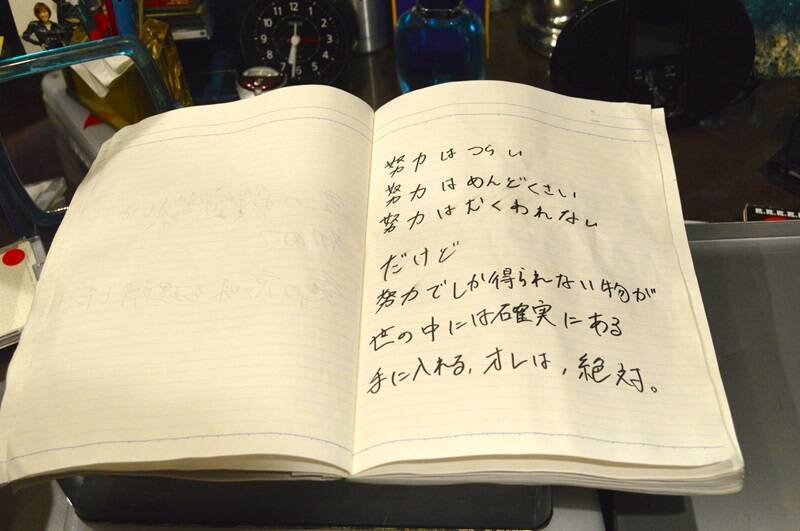 努力はつらい
努力はめんどくさい
努力はむくわれない
だけど
努力でしか得られない物が
世の中には確実にある
手に入れる，オレは，絶対。